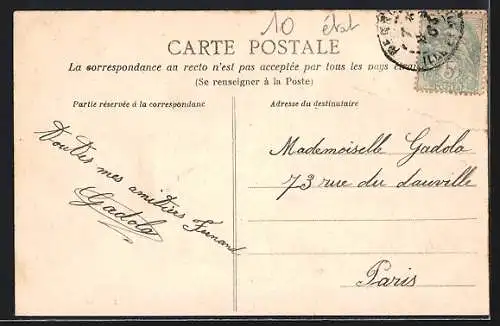 10 état
CARTE POSTALE
La correspondance au recto n'est pas acceptée par tous les pays
(Se renseigner à la Poste)
Partie réservée à la correspondanc
Adresse du destinataire
Toutes mes amitiés Fernand
Gadola
Mademoiselle Gadola
73 rue du dauville
Paris